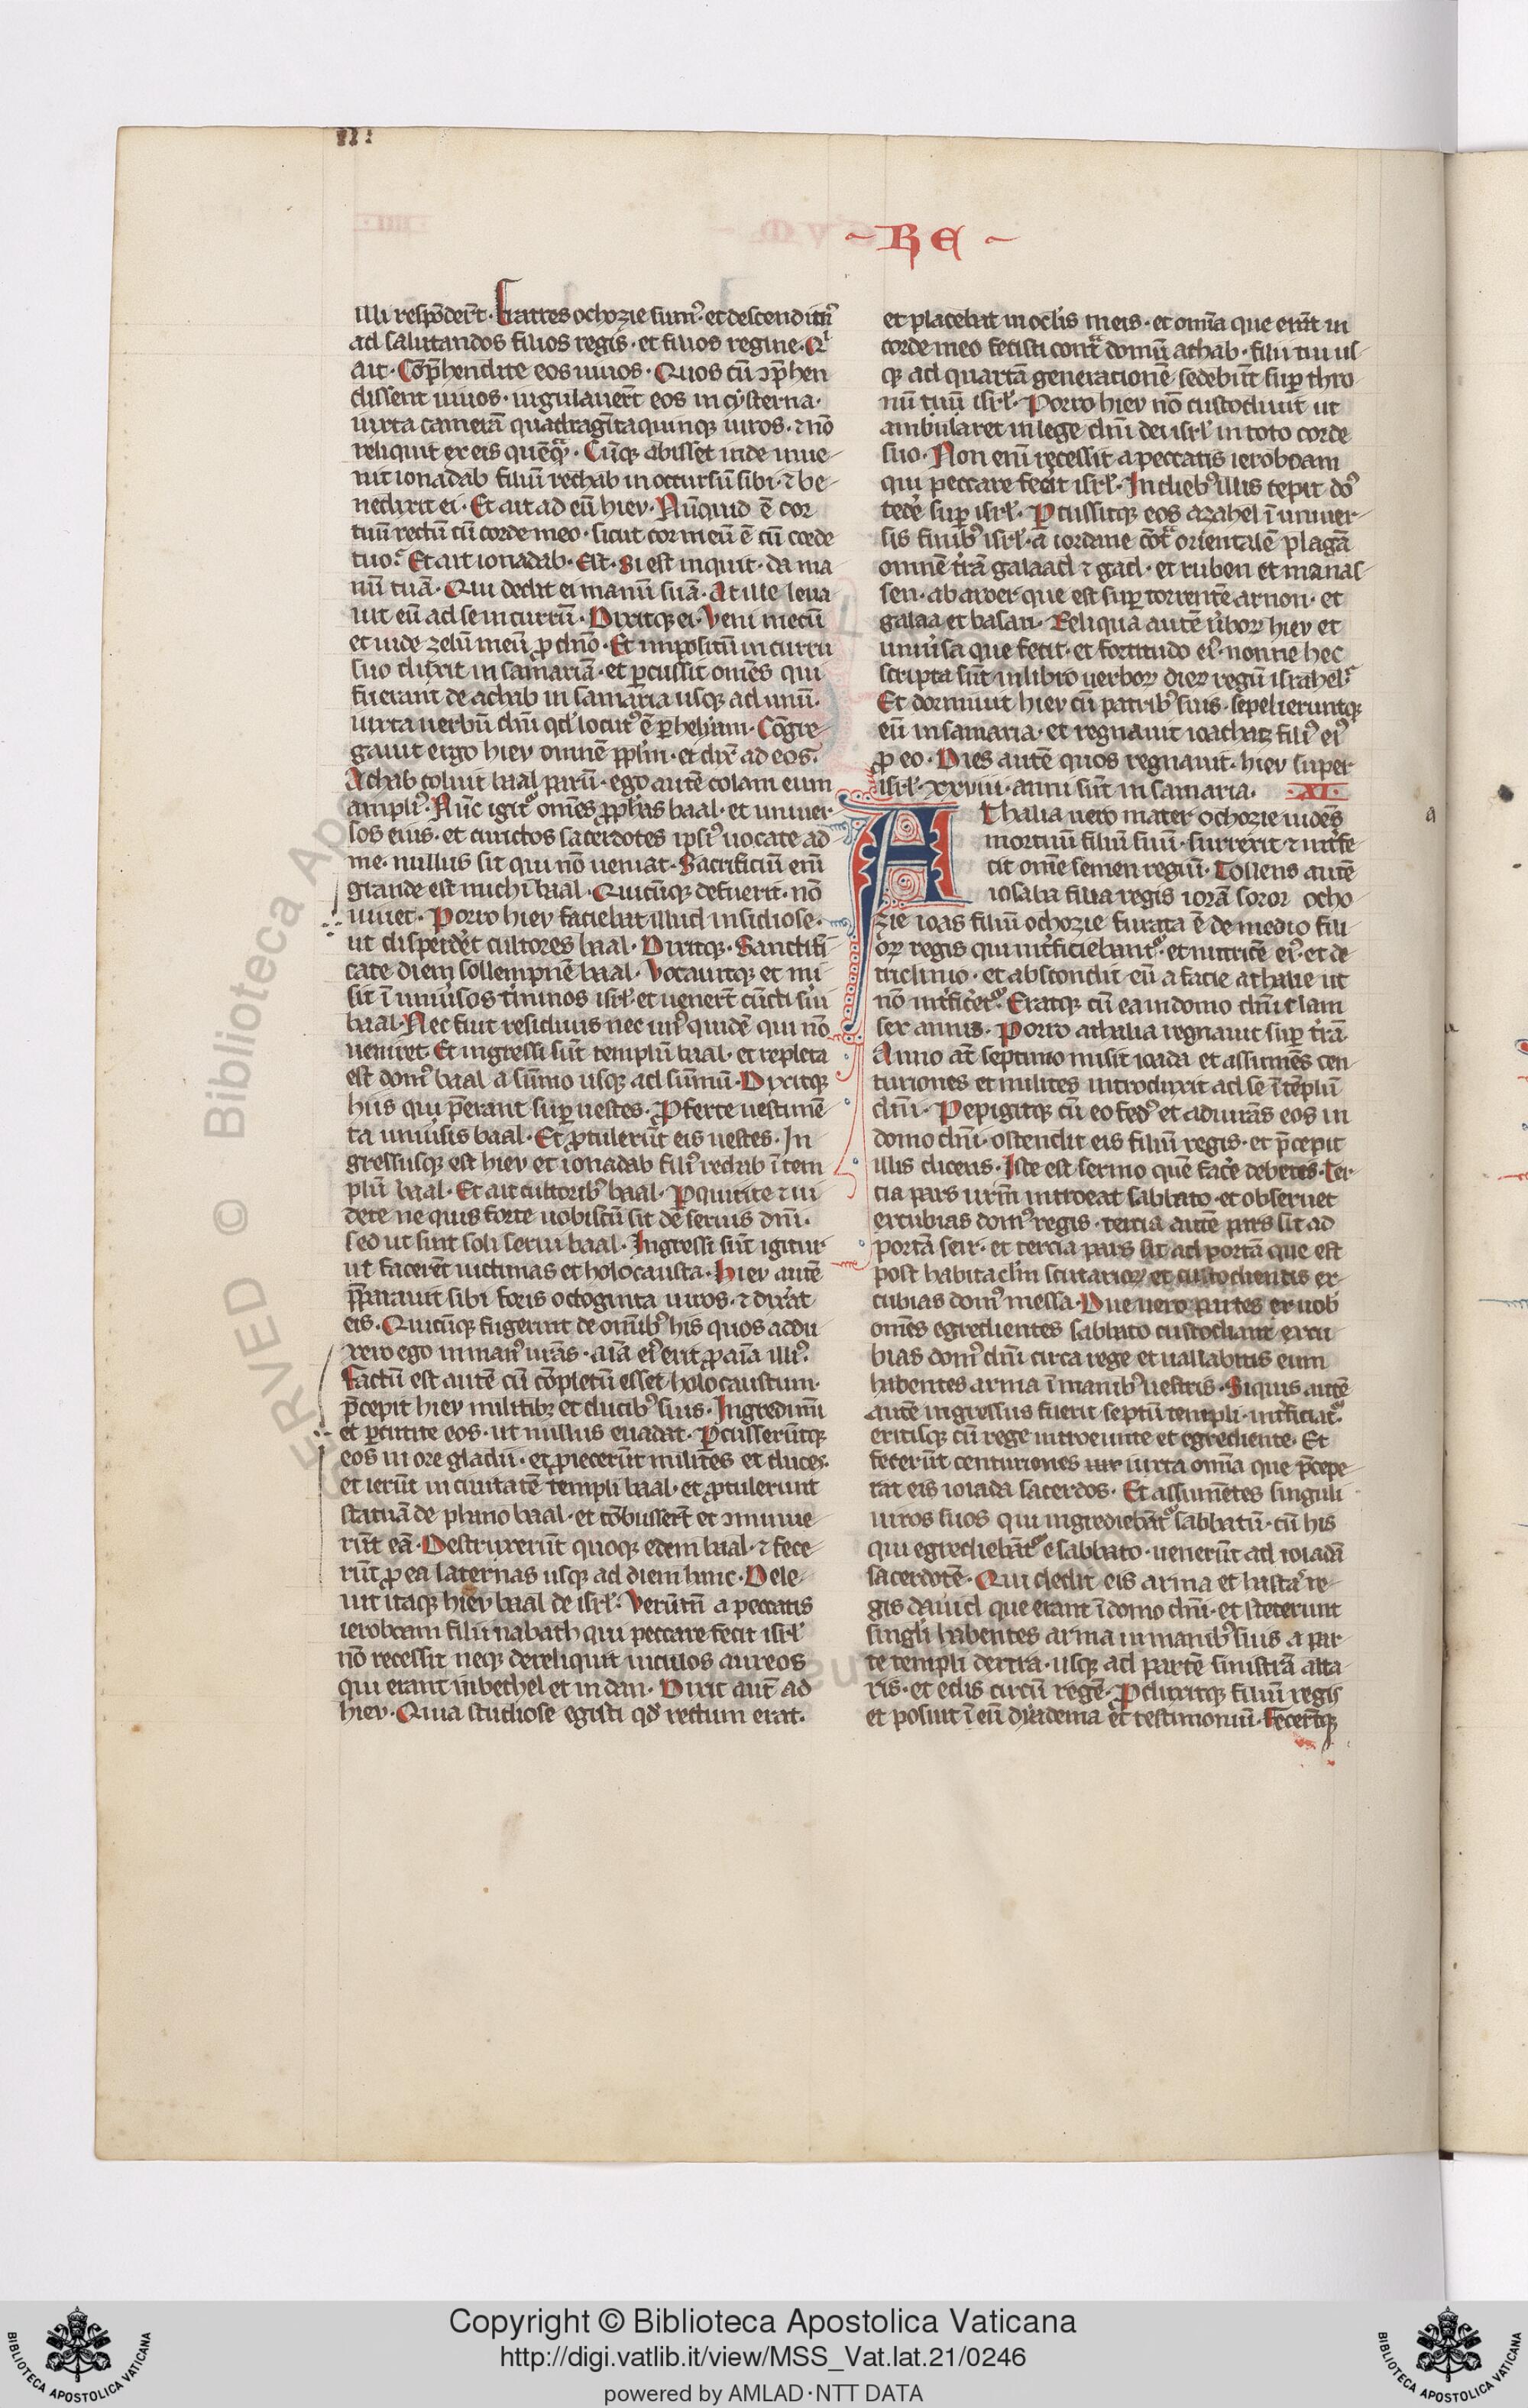 - R E -
illi respōder̄t. Fratres ochozie sumꝰ. et descendimꝰ
ad salutandos filios regis. et filios regine. Qͥ
ait. Cōp̄hendite eos uiuos. Quos cū ꝯp̄hen
dissent uiuos. iugulauer̄t eos in cysterna.
iuxta camerā quadragītaquinqꝫ uiros. ⁊ nō
reliquit ex eis quēqͣ. Cūqꝫ abisset inde inue-
nit ionadab filiū rechab in occursū sibi. ⁊ be-
nedixit ei. Et ait ad eū hiev. Nūquid ē cor
tuū rectū cū corde meo. sicut cor meū ē cū corde
tuo. Et ait ionadab. Est. Si est inquit. da ma
nū tuā. Qui dedit ei manū suā. At ille leua
uit eū ad se in currū. Dixitqꝫ ei. Veni mecū
et uide zelū meū ꝓ dn̄o. Et impositū in curru
suo duxit in samariā. et ꝑcussit om̄es qui
fuerant de achab in samaria usqꝫ ad unū.
iuxta uerbū dn̄i qd̓ locutꝰ ē ꝑ helyam. Cōgre-
gauit ergo hiev omnē pplm̄. et dix̄ ad eos.
Achab coluit baal parū. ego autē colam eum
ampliꝰ. Nūc igitͬ om̄es ꝓph̄as baal. et uniuer-
sos eius. et cunctos sacerdotes ipsiꝰ uocate ad
me. nullus sit qui nō ueniat. Sacrificiū enī
grande est michi baal. Quicūqꝫ defuerit. nō
uiuet. Porro hiev faciebat illud insidiose.
ut disperdēt cultores baal. Dixitqꝫ. Sanctifi-
cate diem sollempnē baal. Vocauitqꝫ et mi
sit ī uniuͥsos tͥminos isrl̓. et uener̄t cūcti sͥui
baal. Nec fuit residuus nec unꝰ quidē qui nō
ueniret. Et ingressi sūt templū baal. et repleta
est domꝰ baal a sūmo usqꝫ ad sūmū. Dixitqꝫ
hiis qui p̄erant suꝑ uestes. Ꝓferte uestimē-
ta uniuͥsis baal. Et ꝓtulerūt eis uestes. In
gressusqꝫ est hiev et ionadab filiꝰ rechab ī tem
plū baal. Et ait cultoribꝰ baal. Ꝑquirite ⁊ ui
dete ne quis forte uobiscū sit de seruis dn̄i.
sed ut sint soli serui baal. Ingressi sūt igitur
ut facerēt uictimas et holocausta. Hiev autē
p̄parauit sibi foris octoginta uiros. ⁊ dixͥat
eis. Quicūqꝫ fugerint de om̄ibꝰ his quos addu
xero ego in manꝰ ur̄as. aīa eiꝰ erit ꝓ aīa illiꝰ.
Factū est autē cū cōpletū esset holocaustum.
p̄cepit hiev militibꝫ et ducibꝰ suis. Ingredimī
et ꝑcutite eos. ut nullus euadat. Ꝑcusserūtqꝫ
eos in ore gladii. et ꝓiecerūt milites et duces.
et ierūt in ciuitatē templi baal. et ꝓtulerunt
statuā de phano baal. et cōbusser̄t et ꝯminue
rūt eā. Destruxerūt quoqꝫ edem baal. ⁊ fece-
rūt ꝓ ea laternas usqꝫ ad diem hunc. Dele-
uit itaqꝫ hiev baal de isrl̓. Verūtn̄ a peccatis
ieroboam filii nabath qui peccare fecit isrl̓
nō recessit neqꝫ dereliquit uitulos aureos
qui erant in bethel et in dan. Dixit aut̄ ad
hiev. Quia studiose egisti qd̓ rectum erat.
et placebat in oclis meis. et om̄ia que erāt in
corde meo fecisti contͣ domū achab. filii tui us-
qꝫ ad quartā generacionē sedebūt suꝑ thro-
nū tuū isrl̓. Porro hiev nō custodiuit ut
ambularet in lege dn̄i dei isrl̓ in toto corde
suo. Non enī recessit a peccatis ieroboam
qui peccare fecit isrl̓. In diebꝰ illis cepit dn̄s
tede̓ suꝑ isrl̓. Ꝑcussitqꝫ eos azahel ī uniuer-
sis finibꝰ isrl̓. a iordane cōtͣ orientalē plagā
omnē tr̄ā galaad ⁊ gad. et ruben et manas-
sen. ab aroer que est suꝑ torrentē arnon. et
galaa et basan. Reliqua autē uͥboꝝ hiev et
uniuͥsa que fecit. et fortitudo eiꝰ. nonne hec
scripta sūt in libro uerboꝝ dieꝝ regū israhel.
Et dormiuit hiev cū patribꝰ suis. sepelieruntqꝫ
eū in samaria. et regnauit ioachaz filiꝰ eiꝰ
ꝓ eo. Dies autē quos regnauit. hiev super
isrl̓. xxviii. anni sūt in samaria. .XI.
Athalia uero mater ochozie uidēs
mortuū filiū suū. surrexit ⁊ intͥfe
cit om̄e semen regiū. Tollens autē
iosaba filia regis iorā soror ocho-
zie ioas filiū ochozie furata ē de medio fili
oꝝ regis qui intͥficiebantͬ. et nutricē eiꝰ. et de
triclinio. et abscondit eū a facie athalie ut
nō intͥficͥetͬ. Eratqꝫ cū ea in domo dn̄i clam
sex annis. Porro athalia regnauit suꝑ tr̄ā.
Anno at̄ septimo misit ioada et assumēs cen
turiones et milites introduxit ad se ī tēplū
dn̄i. Pepigitqꝫ cū eo fedꝰ et adiurās eos in
domo dn̄i. ostendit eis filiū regis. et p̄cepit
illis dicens. Iste est sermo quē facͥe debetes. Ter-
cia pars ur̄m introeat sabbato. et obseruet
excubias domꝰ regis. tercia autē pars sit ad
portā seir. et tercia pars sit ad portā que est
post habitaclm̄ scutarioꝝ et custodientis ex-
cubias domꝰ messa. Due uero partes ex uob̄
om̄es egredientes sabbato custodiant excu
bias domꝰ dn̄i circa rege et uallabitis eum
habentes arma ī manibꝰ uestris. Siquis autē
autē ingressus fuerit septū templi. intͥficiatͬ.
eritisqꝫ cū rege introeunte et egrediente. Et
fecerūt centuriones iuxta om̄ia que p̄cepe-
rat eis ioiada sacerdos. Et assumētes singuli
uiros suos qui ingrediebātͬ sabbatū. cū his
qui egrediebātͬ e sabbato. uenerūt ad ioiadā
sacerdotē. Qui dedit eis arma et hastas re-
gis dauid que erant ī domo dn̄i. et steterunt
singli̓ habentes arma in manibꝰ suis a par-
te templi dextra. usqꝫ ad partē sinistrā alta-
ris. et edis circū regē. Ꝓduxitqꝫ filiū regis
et posuit ī eū dyadema et testimoniū. Fecer̄tqꝫ
a
RVED © Biblioteca Apos
Copyright © Biblioteca Apostolica Vaticana
http://digi.vatlib.it/view/MSS_Vat.lat.21/0246
powered by AMLAD·NTT DATA
BIBLIOTECA APOSTOLICA VATICANA
BIBLIOTECA APOSTOLICA VATICANA